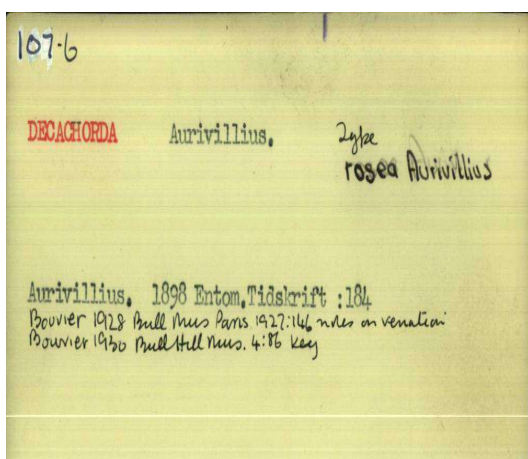 107·6
DECACHORDA Aurivillius. Type
rosea Aurivillius
Aurivillius. 1898 Entom.Tidskrift :184
Bouvier 1928 Bull Mus Paris 1927:146 notes on venation
Bouvier 1930 Bull Hill Mus. 4:86 key